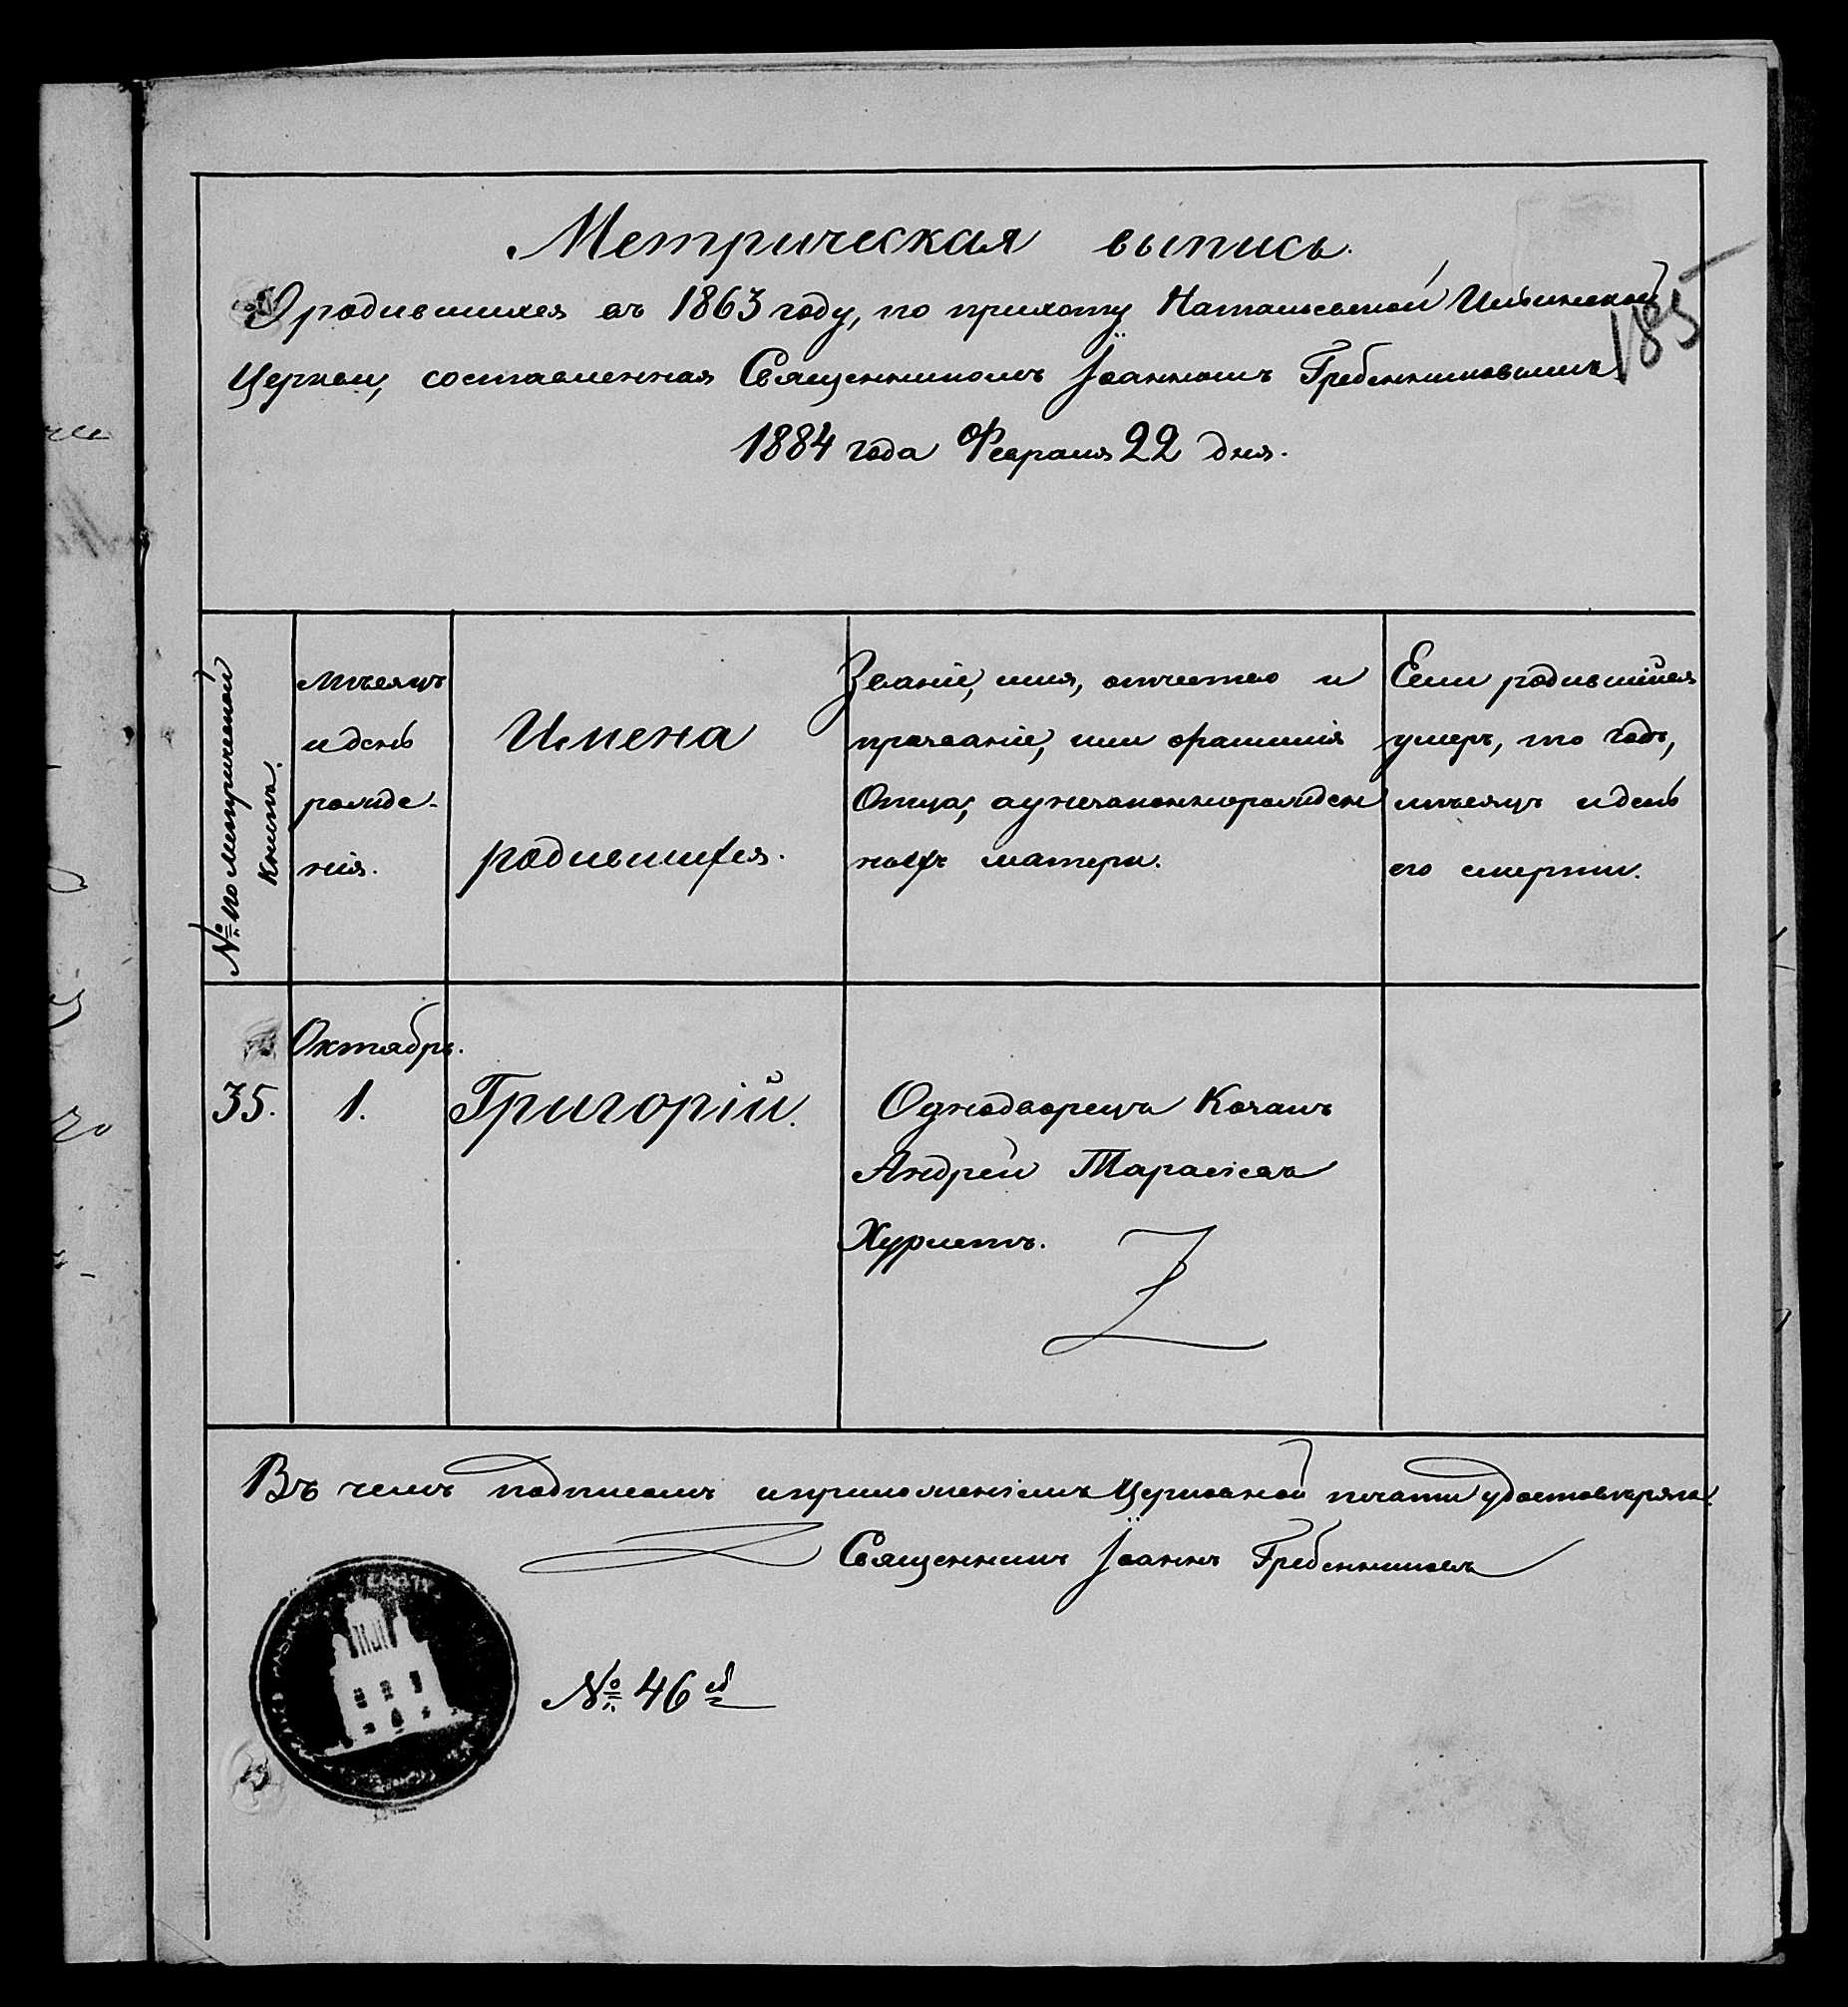 Метрическая выпись.
О родившихся въ 1863 году, по приходу Натальевской Ильинской
185
Церкви, составленная Священникомъ Іоанномъ Гребенниковымъ
1884 года Февраля 22 дня.
№ по метрической
книгѣ.
Мѣсяцъ
и день
рожде-
нія.
Имена
родившихся.
Званіе, имя, отчество и
прозваніе, или фамилія
Отца, а у незаконнорожден
ныхъ матери.
Если родившійся
умеръ, то годъ,
мѣсяцъ и день
его смерти.
35.
Октябрь.
1.
Григорій.
Однодворецъ Козакъ
Андрей Тарасіевъ
Въ чемъ подписомъ и приложеніемъ Церковной печати удостовѣряю.
Священникъ Іоаннъ Гребенниковъ
№ 46